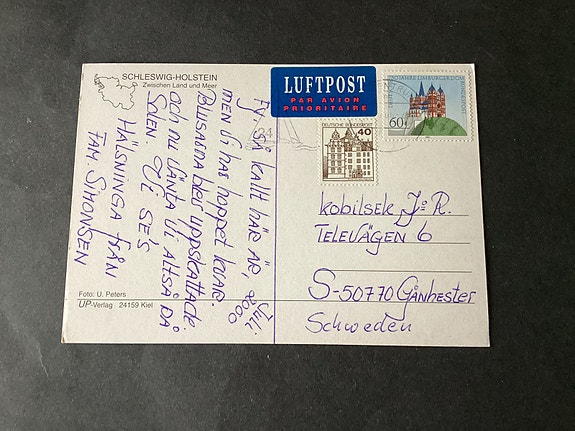 SCHLESWIG-HOLSTEIN
Zwischen Land und Meer
LUFTPOST
PAR AVION
PRIORITAIRE
DEUTSCHE BUNDESPOST
40
60
Juli
2000
Fy, så kallt här är,
men vi har hoppet kvar.
Blusarna blev uppskattade
och nu väntar vi altså på
Solen. Vi se's
HÄLSNINGA FRÅN
FAM SIMONSEN
Kobilsek J:R.
TELEVÄGEN 6
S-50770 Gånhester
Schweden
Foto: U. Peters
UP-Verlag 24159 Kiel